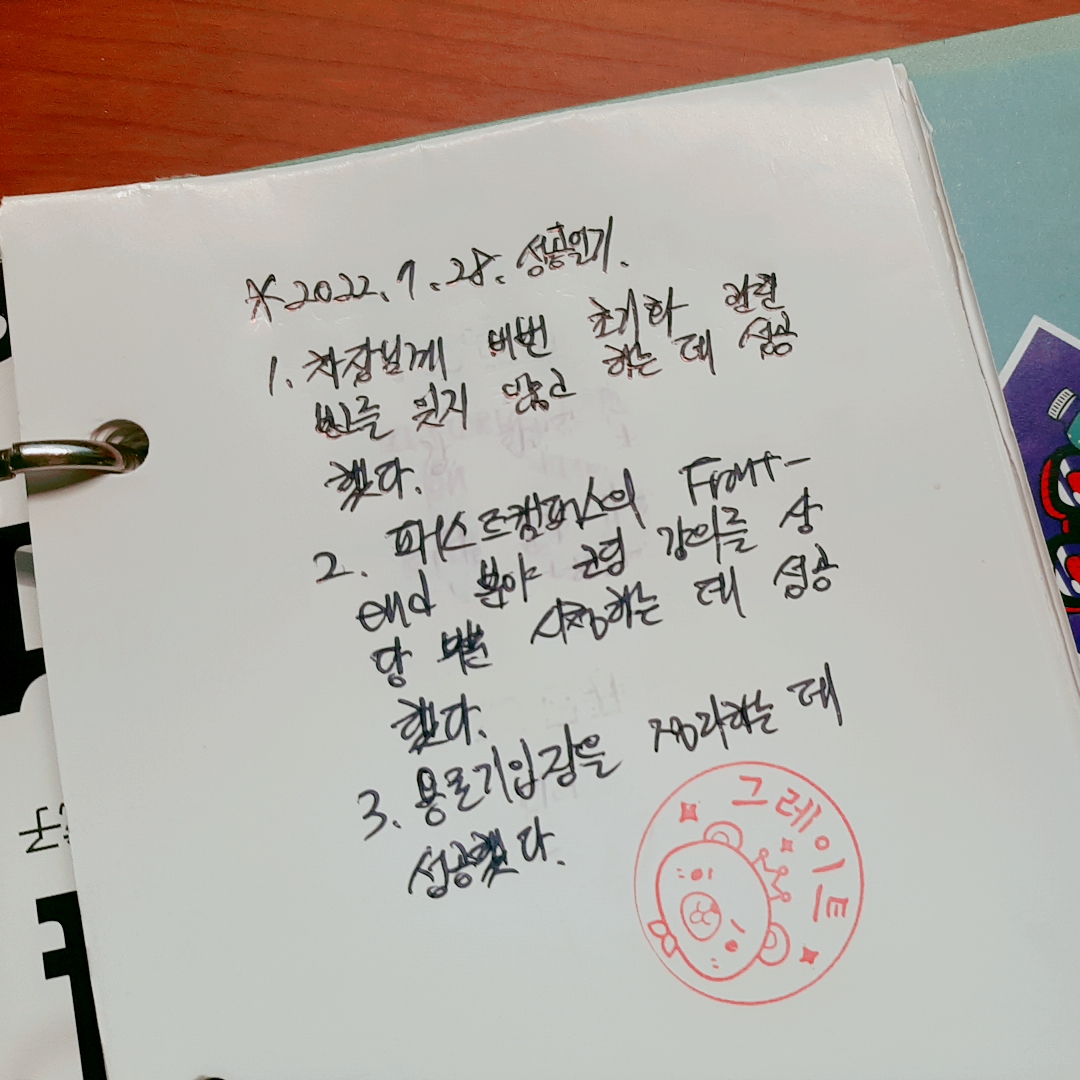 ※2022.7.28. 성공일기.
1. 차장님께 비번 초기화 관련
비를 잊지 않고 하는 데 성공
했다.
2. 패스트캠퍼스의 Front-
end 분야 강의를 상
당 부분 시청하는 데 성공
했다.
3. 용돈기입장을 정리하는 데
성공했다.
그레이트